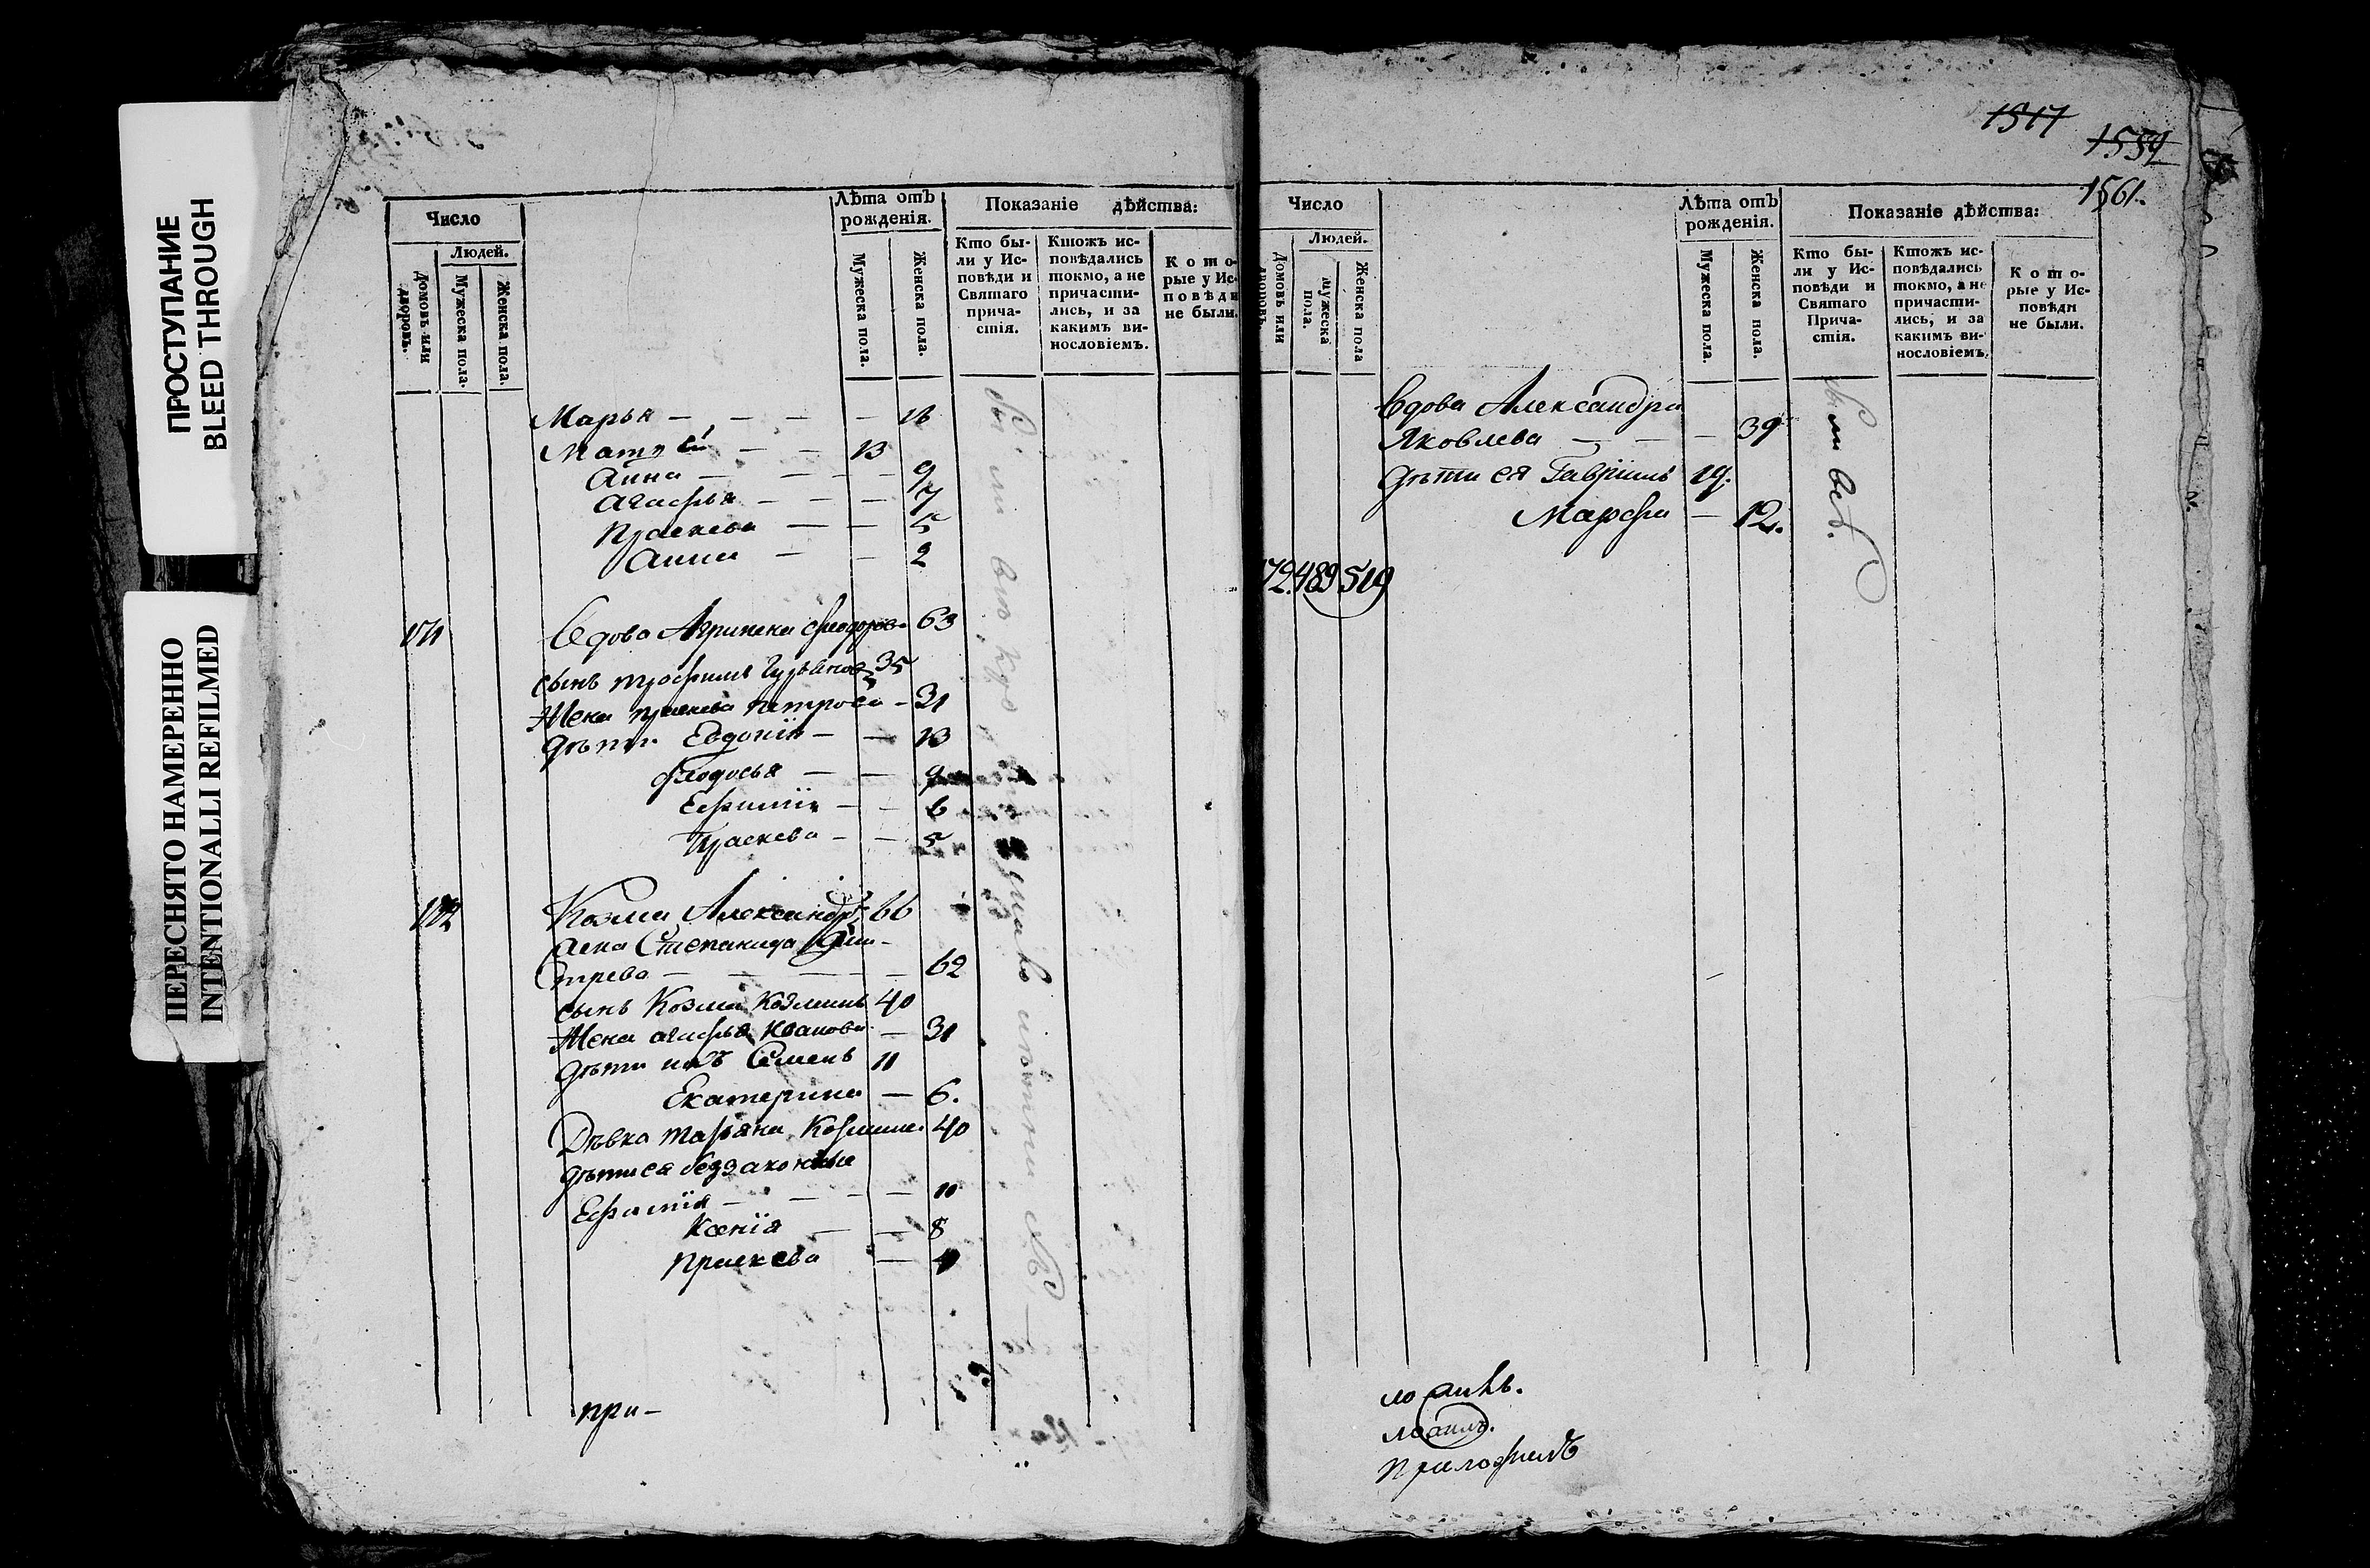 ПРОСТУПАНИЕ
BLEED THROUGH
ПЕРЕСНЯТО НАМЕРЕННО
INTENTIONALLI REFILMED
Число
Людей.
Домовъ или дворовъ.
Мужеска пола.
Женска пола.
Лѣта отъ рожденія.
Мужеска пола.
Женска пола.
Показаніе дѣйства:
Кто бы-
ли у Ис-
повѣди и
Святаго
прича-
стія.
Ктожъ ис-
повѣдались
токмо, а не
причасти-
лись, и за
какимъ ви-
нословіемъ.
Кото-
рые у Ис-
повѣди
не были.
Марья — — — — 16
Матѳей — — 13
Анна — — — 9
Агафья — — — 7
Праскева — — 5
Анна — — 2
171 Вдова Агрипена Феодорова 63
сынъ Трофимъ Гурьяновъ 35
Жена Праскева Петрова — 31
дѣти Евдокія — — 13
Феодосья — — 9
Ефимія — — 6
Праскева — — 5
172 Козма Александровъ 66
жена Степанида Дми-
трева — — — — 62
сынъ Козма Козминъ 40
Жена Агафья Иванова — 31
дѣти ихъ Семенъ 11
Екатерина — 6.
Дѣвка Татьяна Козмина 40
дѣти ея беззаконные
Ефимія — — — — 11
Ксенія — — 8
Праскева — 4
при-
1517
1559
1561.
Число
Людей.
Домовъ или дворовъ.
Мужеска пола.
Женска пола
Лѣта отъ рожденія.
Мужеска пола.
Женска пола.
Показаніе дѣйства:
Кто бы-
ли у Ис-
повѣди и
Святаго
Прича-
стія.
Ктожъ ис-
повѣдались
токмо, а не
причасти-
лись, и за
какимъ ви-
нословіемъ.
Кото-
рые у Ис-
повѣди
не были.
Вдова Александра
Яковлева — — — 39
дѣти ея Гавріилъ 19.
Марфа — 12.
были всѣ.
172. 489 519